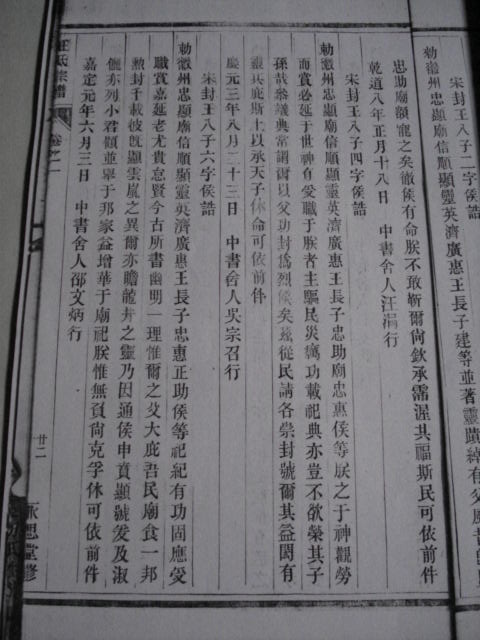 宋封王八子二字侯誥
勑徽州忠顯廟信順顯靈英濟廣惠王長子建等並著靈蹟綽有父風昔
忠助廟額寵之矣徹侯有命朕不敢靳爾尙欽承霈渥其福斯民可依前件
乾道八年正月十八日　中書舍人汪涓行
宋封王八子四字侯誥
勑徽州忠顯廟信順顯靈英濟廣惠王長子忠助廟忠惠侯等朕之于神觀勞
而賞必延于世神有愛職于朕者主驅民災癘功載祀典亦豈不欲榮其子
孫哉參議典常謂爾以父功封爲烈侯矣玆從民請各崇封號爾其益閎有
靈其庇斯土以承天子休命可依前件
慶元三年八月二十三日　中書舍人吳宗召行
宋封王八子六字侯誥
勑徽州忠顯廟信順顯靈英濟廣惠王長子忠惠正助侯等祀紀有功固應爰
職賞嘉延老尤貴怠賢今古所書幽明一理惟爾之父大庇吾民廟食一邦
勲封千載彼旣顯雲嵐之異爾亦贍龍井之靈乃因通侯申賁顯號爰及淑
儷亦列小君顧並畢于邦家益增華于廟祀朕惟無負尙克孚休可依前件
嘉定元年六月三日　中書舍人邵文炳行
汪氏宗譜
卷之二
廿二
永思堂修